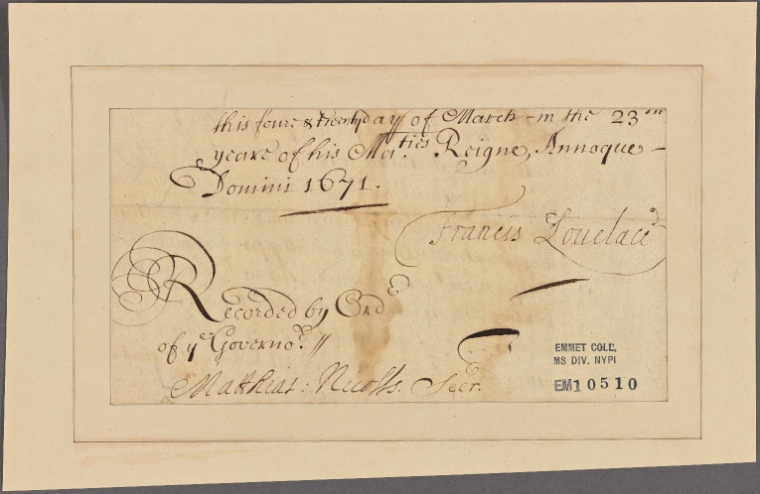 this foure & twenty day of March in the 23th
yeare of his Ma.ties Reigne, Annoque
Domini 1671.
Francis Lovelace
Recorded by Ordr
of ye Governor
Matthias: Nicolls. Secr.
EMMET COLL.
MS DIV. NYPL
EM10510